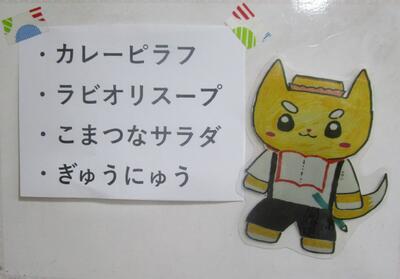 ・カレーピラフ
・ラビオリスープ
・こまつなサラダ
・ぎゅうにゅう